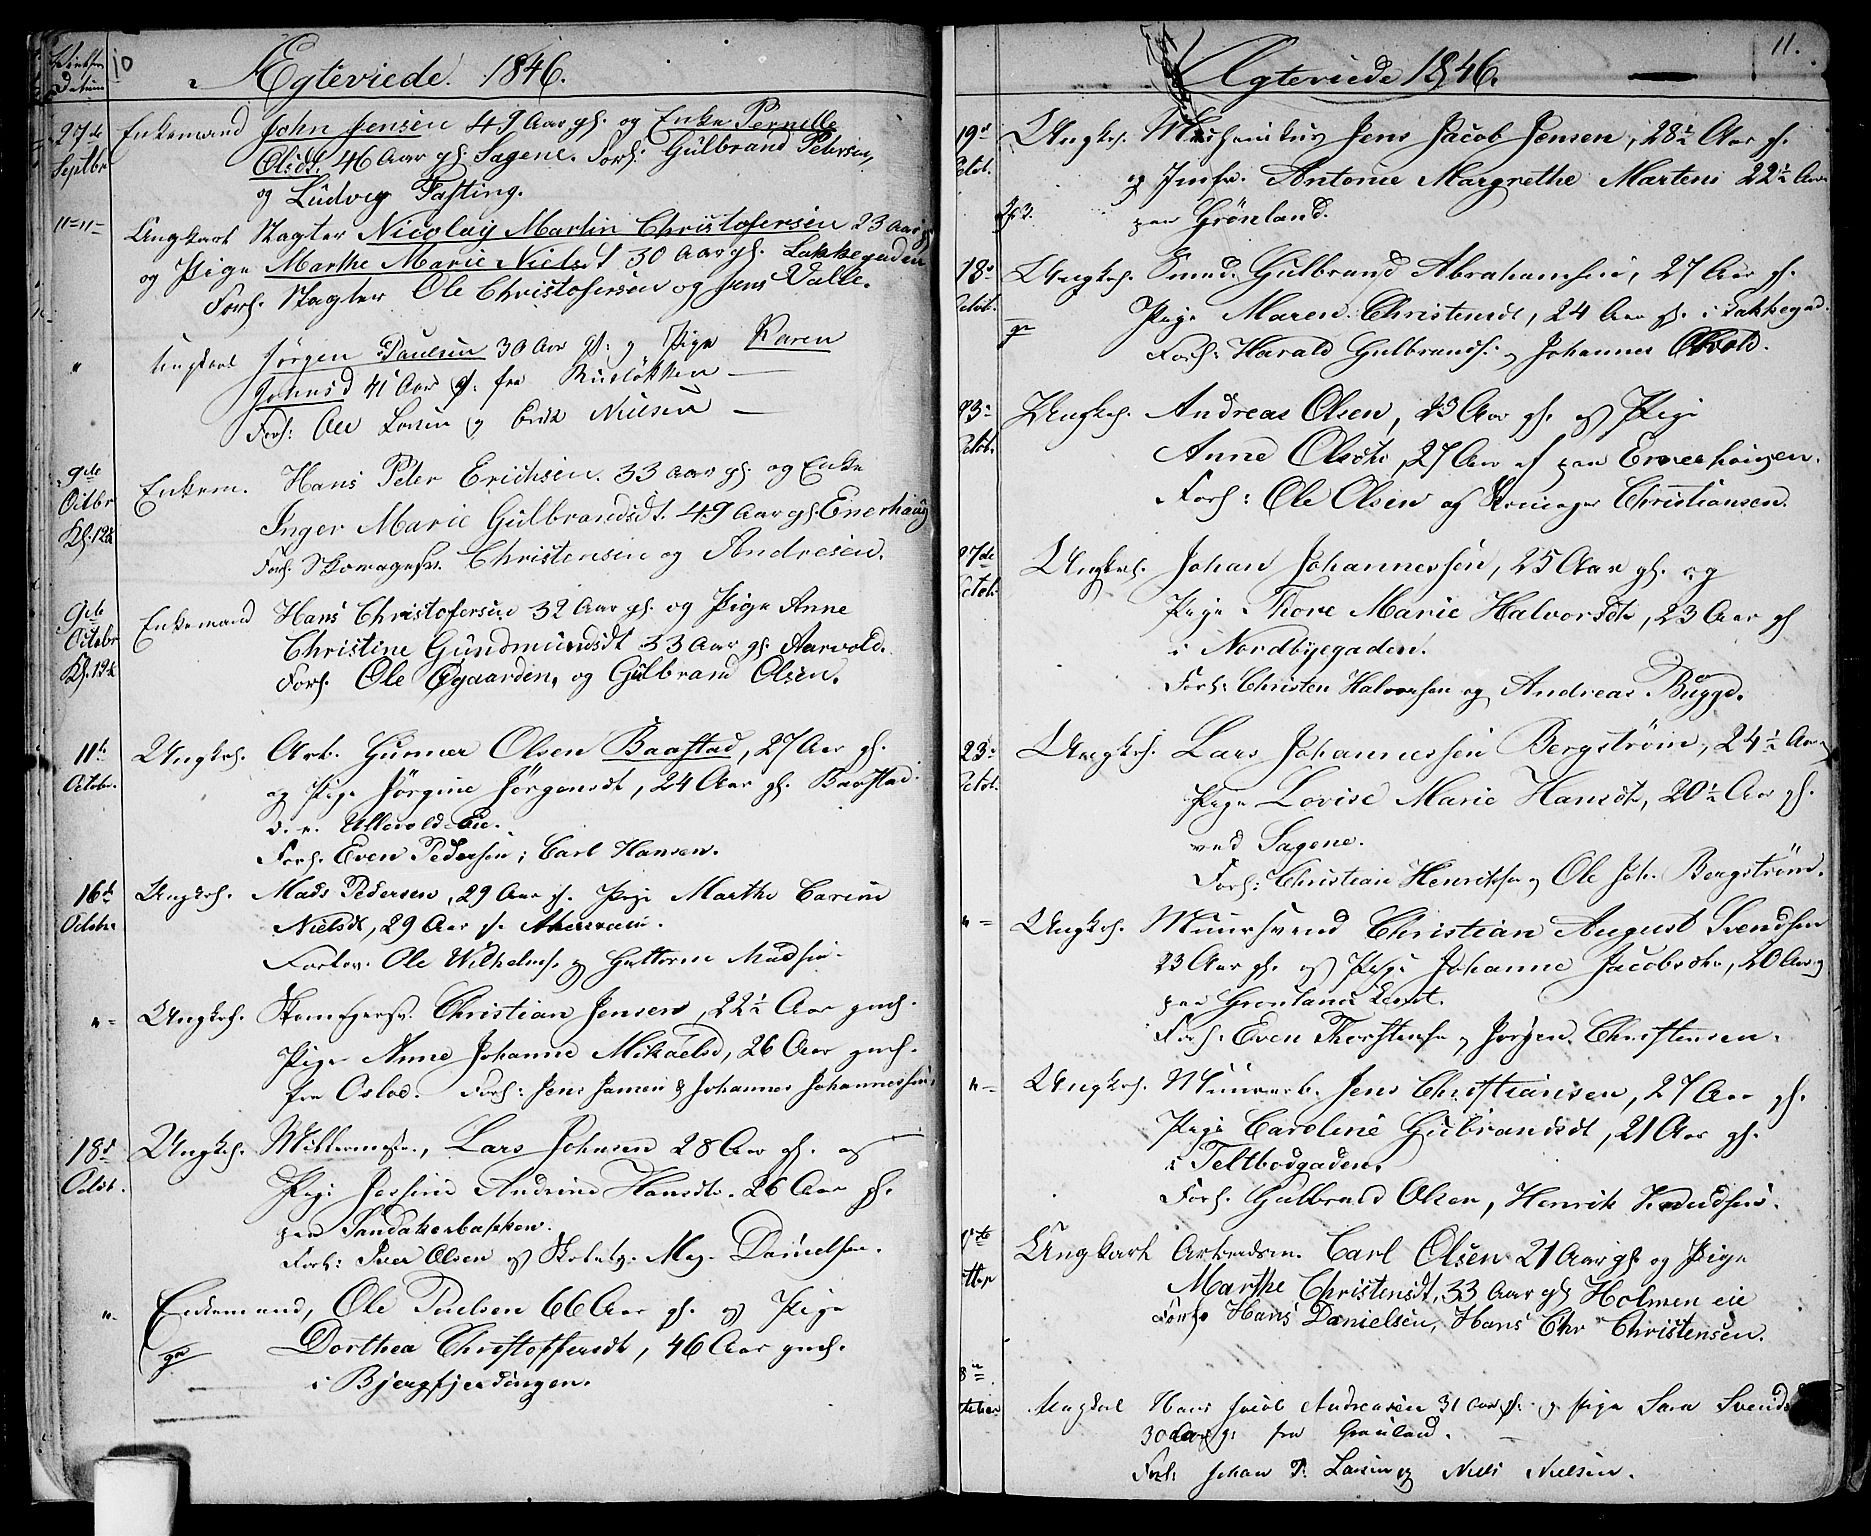 10
Ægteviede. 1846.
27de Septbr Enkemand John Jensen 49 Aar gl. og Enke Pernille
Olsdt. 46 Aar gl. Sagene. Forl: Gulbrand Petersen,
og Ludvig Fasting.
"="= Ungkarl Slagter Nicolay Martin Christofersen 23 Aar gl.
og Pige Marthe Marie Nielsdt 30 Aar gl. Lakkegaden
Forl. Slagter Ole Christofersen og Jens Valle.
" Ungkarl Jørgen Paulsen 30 Aar gl. og Pige Karen
41 Aar gl. fra Ruseløkken —
Forl: Ole Larsen og Erik Nielsen —
9de Octbr Kl. 12½ Enkem. Hans Peter Erichsen. 33 Aar gl. og Enke
Inger Marie Gulbrandsdt. 49 Aar gl. Enerhaug
Forl. Skomagersv. Christensen og Andresen.
9de Octobr Kl. 12½ Enkemand Hans Christofersen 32 Aar gl. og Pige Anne
Christine Gundmundsdt 33 Aar gl. Aarvold.
Forl. Ole Øgaarden, og Gulbrand Olsen.
11te Octobr. Ungkrl. Arb. Gunner Olsen Baastad, 27 Aar gl.
og Pige Jørgine Jørgensdt, 24 Aar gl. Baastad
Ullevold Eie.
Forl. Even Pedersen; Carl Hansen.
16de Octobr. Ungkrl. Mads Pedersen, 29 Aar gl. Pige Marthe Carine
Nielsdt, 29 Aar gl.
Forlov. Ole Wilhelms. og Guttorm Madsen.
"= Ungkrl. Skomagersv. Christian Jensen, 22½ Aar gml.
Pige Anne Johanne Mikaelsd, 26 Aar gml.
fra Oslo. Forl: Jens Jansen & Johannes Johannessen.
18de Octbr. Ungkrl. Lars Johnsen 28 Aar gl. og
Pige Andrine Hansdtr. 26 Aar gl.
paa Sandakerbakken.
Forl: Iver Olsen og Danielsen.
". Enkemand, Ole 66 Aar gl. og Pige
Dorthea Christoffersdt, 46 Aar gml.
i Bjergfjerdingen.
11.
Ægteviede 1846.
19de Octob. Ungkrl. Jens Jacob Jensen, 28½ Aar gl.
og Jmfr. Antonie Margrethe Martens 22½ Aar
paa Grönland.
18de Octob. Ungkrl. Smed. Gulbrand Abrahamsen, 27 Aar gl.
Pige Maren Christensdt, 24 Aar gl. i Lakkegad.
Forl: Harald Gulbrands: og Johannes
23de Octob. Ungkrl. Andreas Olsen, 23 Aar gl. og Pige
Anne Olsdtr, 27 Aar gl paa Enerhaugen.
Forl: Ole Olsen og Christiansen.
27de Octob. Ungkrl. Johan Johannessen, 25 Aar gl. og
Pige Thore Marie Halvorsdtr, 23 Aar gl
i Nordbyegaden.
Forl: Christen Halvorsen og Andreas Bugge.
23de Octob. Ungkrl. Lars Johannessen Bergström, 24½ Aar
Pige Lovise Marie Hansdtr, 20½ Aar gl.
ved Sagene.
Forl: Christian Henriksen og Ole Joh. Bergström.
"= Ungkrl. Muursvend Christian August Svendsen
23 Aar gl. og Pige Johanne Jacobsdtr, 20 Aar gl
paa Grønland
Forl. Even Thorstensen og Jørgen Christensen.
"= Ungkrl. Muurarb. Jens Christiansen, 27 Aar gl.
Pige Caroline Gulbrandsdt, 21 Aar gl.
i Teltbodgaden.
Forl. Gulbrand Olsen, Henrik Knudsen.
Ungkarl Arbeidsm. Carl Olsen 21 Aar gl. og Pige
Marthe Christensdt, 33 Aar gl. Holmen eie
Forl. Hans Danielsen, Hans Chr Christensen.
Ungkarl Hans Jacob Andreasen 31 Aar gl. og Pige Sara
30 Aar gl fra Grønland.
Forl: Johan P. Larsen og Niels Nielsen.